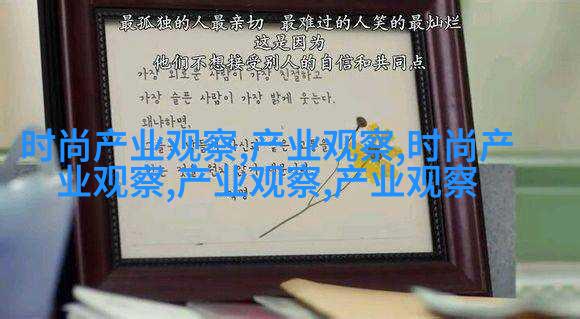 最孤独的人最亲切 最难过的人笑的最灿烂
这是因为
他们不想接受别人的自信和共同点
가장 외로운 사람이 가장 친절하고
가장 슬픈 사람이 가장 밝게 웃는다.
왜냐하면,
时尚产业观察,产业观察,时尚产
业观察,产业观察,产业观察